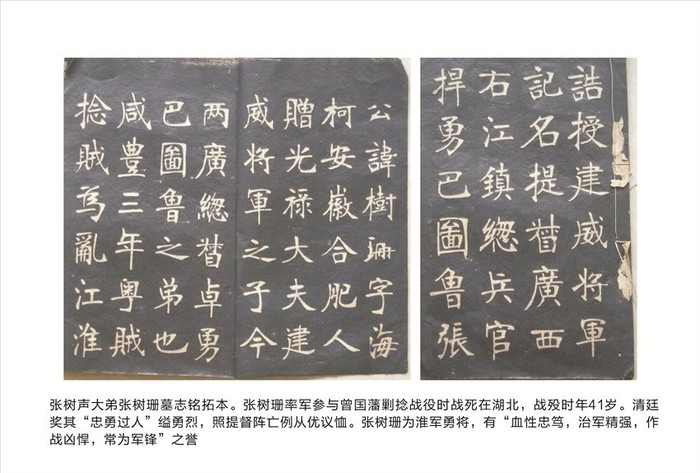 誥授建威將軍
記名提督廣西
右江鎮緫兵官
捍勇巴圖魯張
公諱樹珊字海
柯安徽合肥人
贈光禄大夫建
威將軍之子今
两廣緫督卓勇
巴圖魯之弟也
咸豊三年粤賊
捻賊為亂江淮
张树声大弟张树珊墓志铭拓本。张树珊率军参与曾国藩剿捻战役时战死在湖北，战殁时年41岁。清廷
奖其“忠勇过人”缢勇烈，照提督阵亡例从优议恤。张树珊为淮军勇将，有“血性忠笃，治军精强，作
战凶悍，常为军锋”之誉